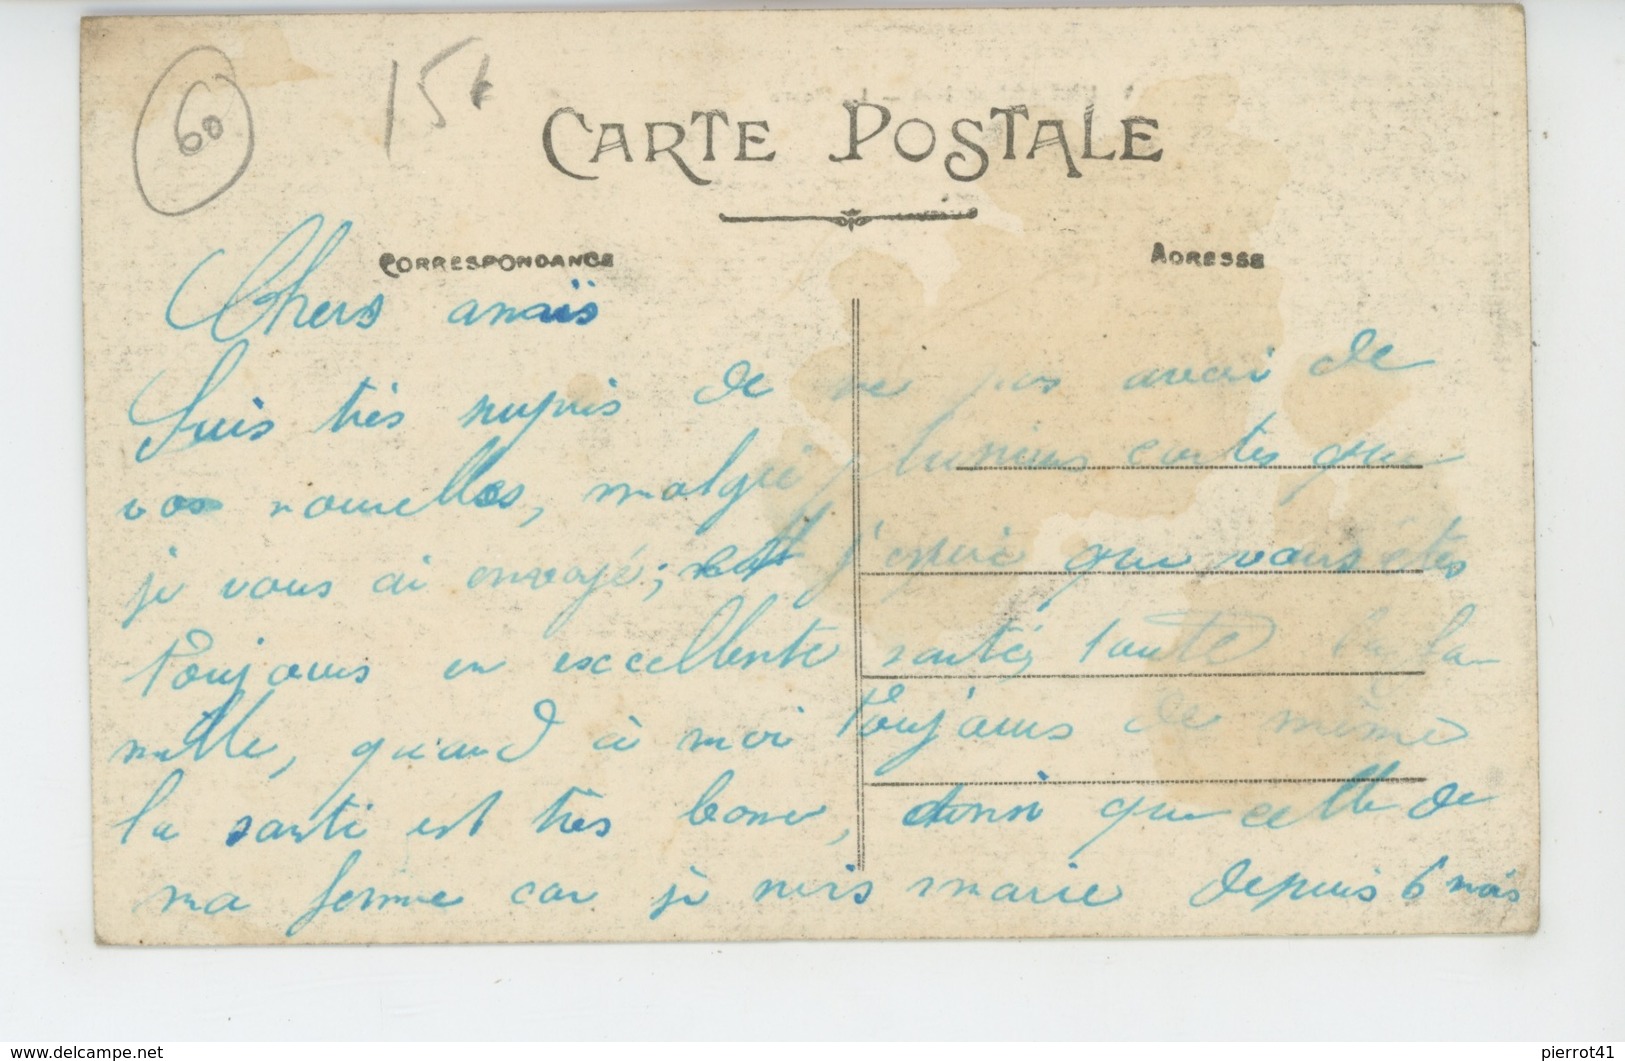 60
15
CARTE POSTALE
CORRESPONDANCE
ADRESSE
Chers amis
Suis très surpris de ne pas avoir de
vos nouvelles, malgré plusieurs cartes que
je vous ai envoyé; j'espère que vous êtes
toujours en excellente santé, toute la fa-
mille, quand à moi toujours de même
la santé est très bonne, ainsi que celle de
ma femme car je suis marie depuis 6 mois
delcampe.net
pierrot41